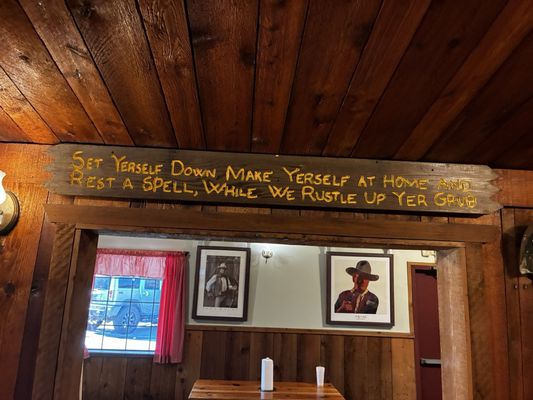 Set Yerself Down Make Yerself at Home and
Rest a Spell, While We Rustle Up Yer Grub